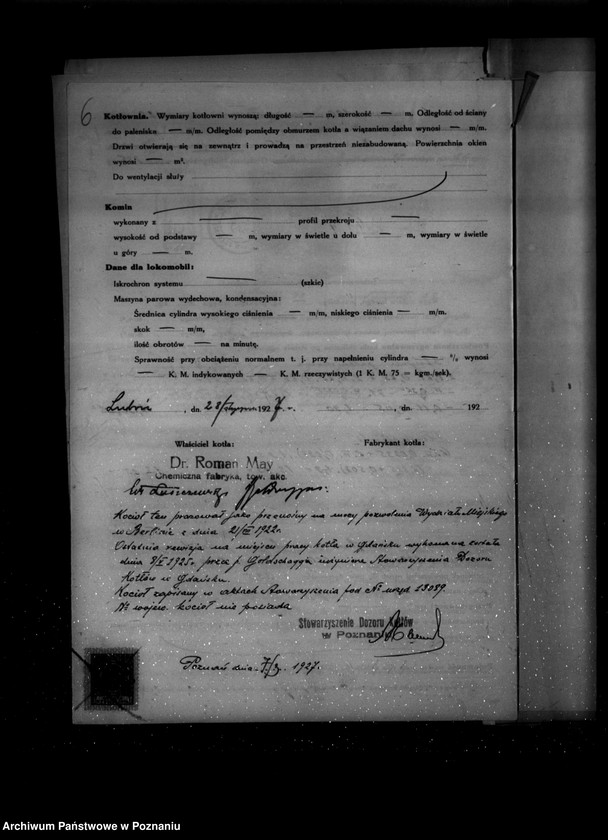 6
Kotłownia. Wymiary kotłowni wynoszą: długość — m, szerokość — m. Odległość od ściany
do palenisko — m/m. Odległość pomiędzy obmurzem kotła a wiązaniem dachu wynosi — m/m.
Drzwi otwierają się na zewnątrz i prowadzą na przestrzeń niezabudowaną. Powierzchnia okien
wynosi — m².
Do wentylacji służy
Komin
wykonany z — profil przekroju —
wysokość od podstawy — m, wymiary w świetle u dołu — m, wymiary w świetle
u góry — m.
Dane dla lokomobil:
Iskrochron systemu — (szkic)
Maszyna parowa wydechowa, kondensacyjna:
Średnica cylindra wysokiego ciśnienia — m/m, niskiego ciśnienia — m/m.
skok — m/m,
ilość obrotów — na minutę.
Sprawność przy obciążeniu normalnem t. j. przy napełnieniu cylindra — % wynosi
— K. M. indykowanych — K. M. rzeczywistych (1 K. M, 75 = kgm./sek).
Luboń, dn. 28/stycznia 1927 r. , dn. 192
Właściciel kotła: Fabrykant kotła:
Dr. Roman May
Chemiczna fabryka, tow. akc.
Kocioł ten pracował jako przenośny na mocy pozwolenia Wydziału Miejskiego
w z dnia 21/ 1922 r.
Ostatnia rewizja na miejscu pracy kotła w Gdańsku wykonana została
dnia 1925 r. przez p. inżyniera Stowarzyszenia Dozoru
Kotłów w Gdańsku.
Kocioł zapisany w aktach Stowarzyszenia pod Nr
Nr wojew. kocioł nie posiada
Stowarzyszenie Dozoru Kotłów
w Poznaniu
Poznań dnia 1927.
Archiwum Państwowe w Poznaniu